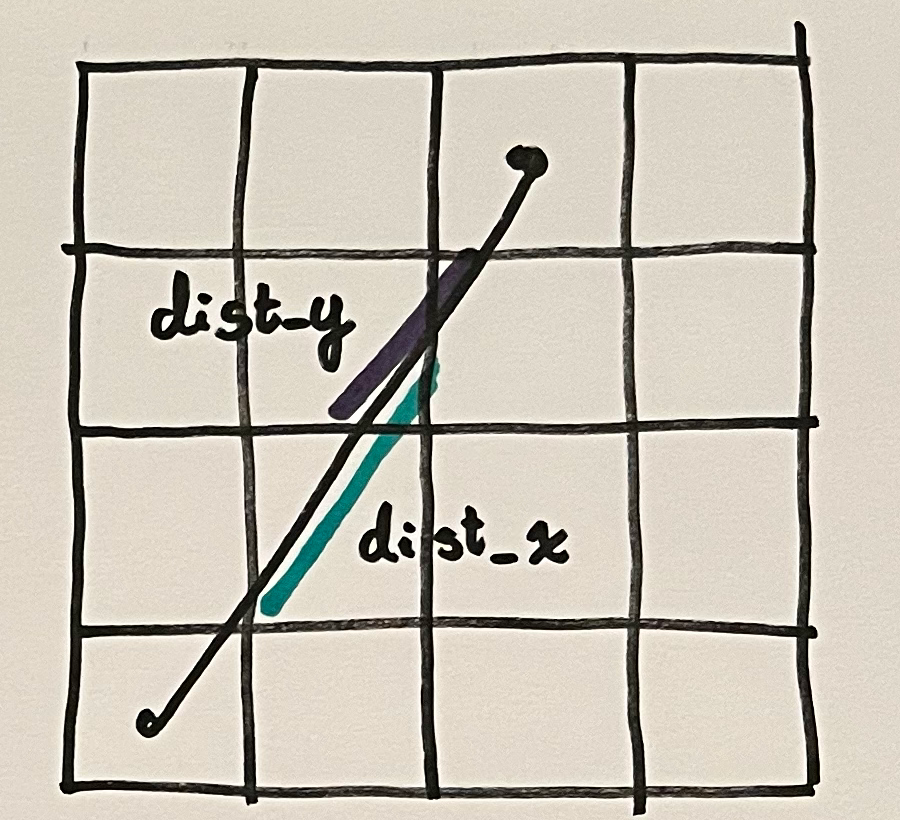 dist_y
dist_x